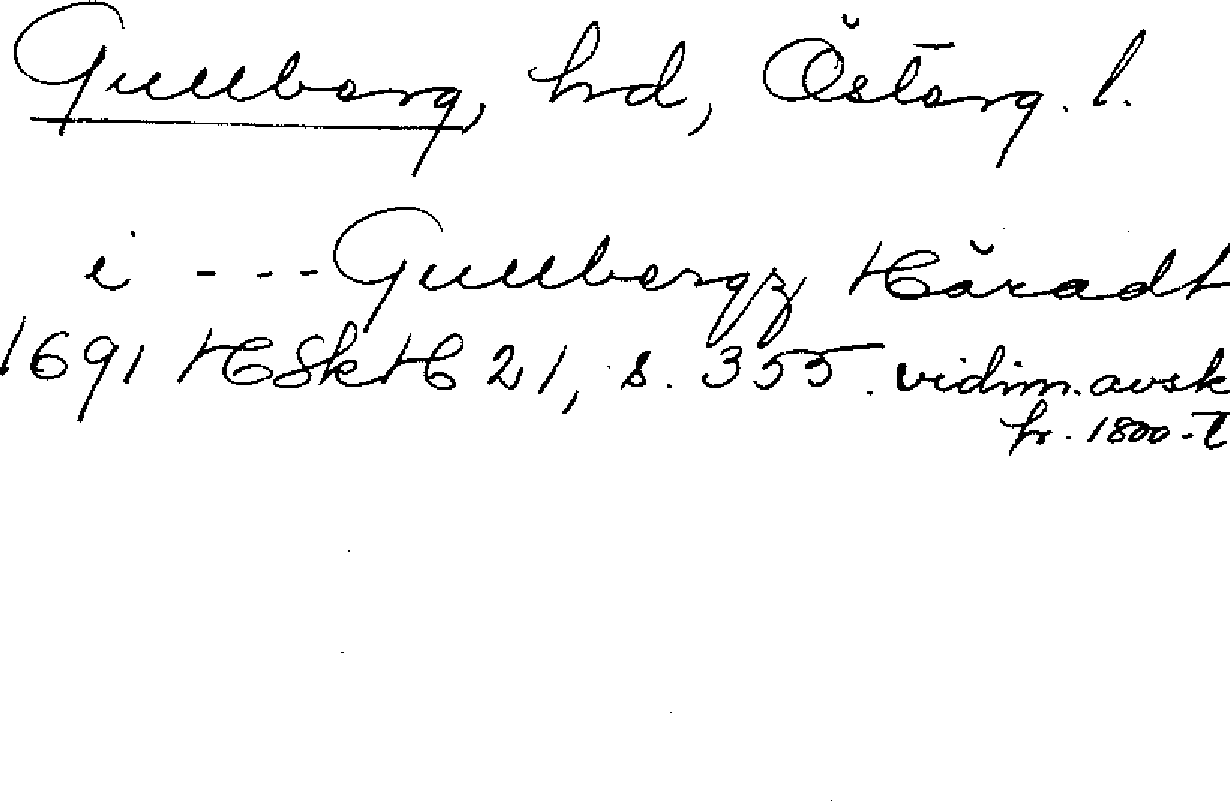 Gullberg, hrd, Österg. l.
i - - - Gullbergz Häradt
1691 HSkH 21, s. 355. vidim. avsk
fr. 1800-t